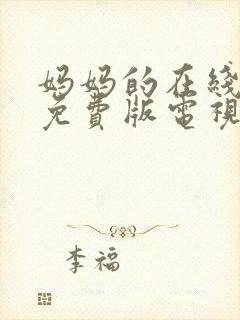 妈妈的在线
免費版電視
李福